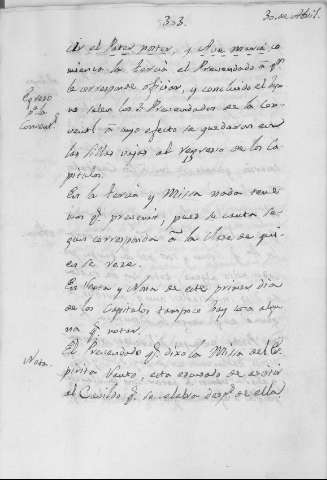 303.
30. de Abril.
cir el Pater noster, y Ave maria co
mienza la tercia el Prevendado a qn.
le corresponde oficiar, y concluido el Hym
no salen los Sres. Prevendados de la Con
ventl. a cuyo efecto se quedaron en
las sillas vajas al regreso de los Ca
pitulos.
Egreso
pa. la
Conventl.
En la tercia y Missa nada tene
mos qe. prevenir, pues se canta se
gun corresponda a la Clase de qui
en se reze.
En Sexta y Nona de este primer dia
de los Capitulos tampoco hay cosa algu
na qe. notar.
Nota.
El Prevendado qe. dixo la Missa del Es
piritu Santo, esta escusado de asistir
al Cavildo qe. se celebra desps. de ella